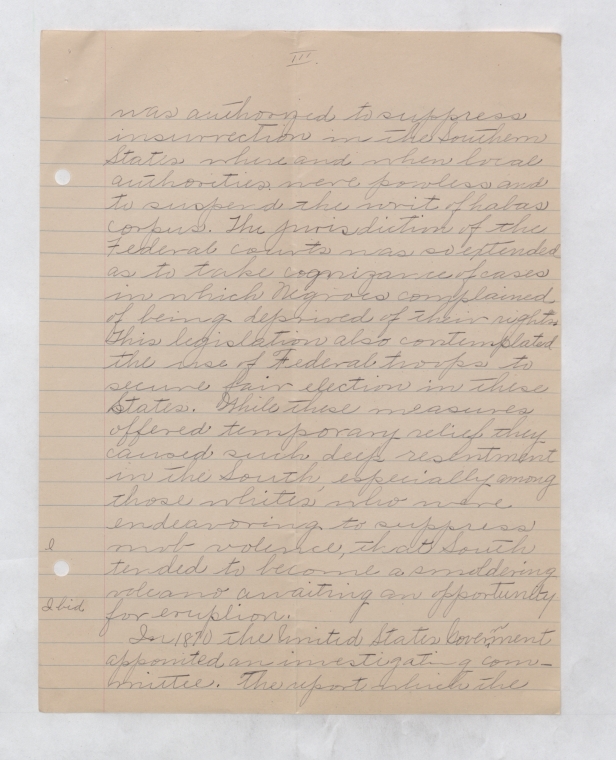 III.
was authorized to suppress
insurrection in the Southern
States where and when local
authorities were powless and
to suspend the writ of habas
corpus. The jurisdiction of the
Federal courts was so extended
as to take cognizance of cases
in which Negroes complained
of being deprived of their rights.
This legislation also contemplated
the use of Federal troops to
secure fair election in these
States. While these measures
offered temporary relief they
caused such deep resentment
in the South, especially among
those whites who were
endeavoring to suppress
mob violence, that South
tended to become a smoldering
volcano awaiting an opportunity
Ibid. for eruption.
In 1870 the United States Government
appointed an investigating com-
mittee. The report which the